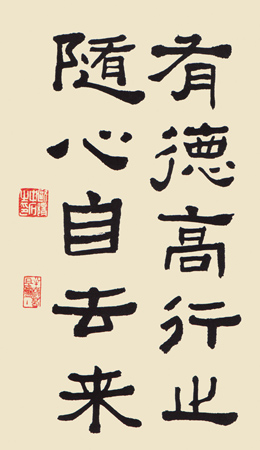 有德高行止
随心自去来